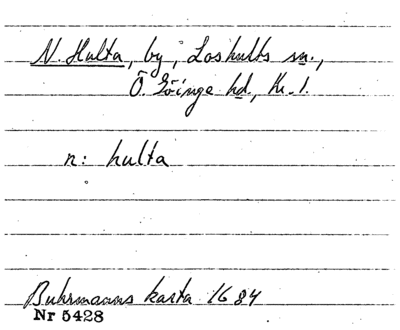 N. Hulta, by, Loshults sn.,
Ö. Göinge hd., Kr. l.
n: hulta
Buhrmanns karta 1684
Nr 5428